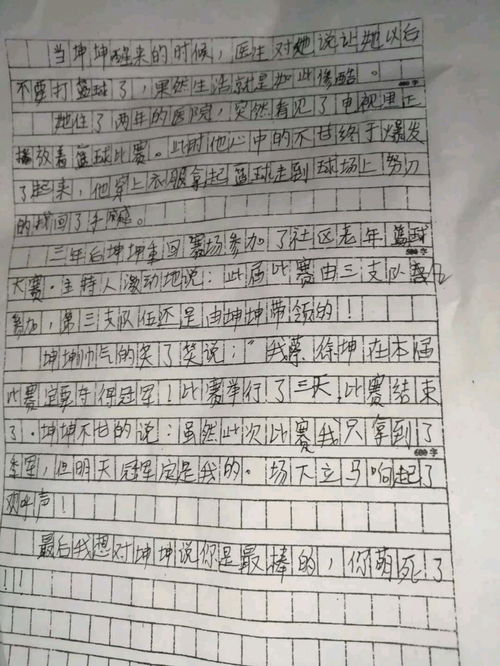 当坤坤醒来的时候，医生对她说让她以后
不要打篮球了，果然生活就是如此惨酷。
600字
她住了两年的医院，突然看见了电视里正
播放着篮球比赛。此时他心中的不甘终于爆发
了起来，他穿上衣服拿起篮球走到球场上努力
的找回了手感。
三年后坤坤重回赛场参加了社区老年篮球
500字
大赛。主持人激动地说：此届比赛由三支队伍
参加，第三支队伍还是由坤坤带领的！
坤坤帅气的笑了笑说："我蔡徐坤在本届
比赛定要夺得冠军！此赛举行了三天！此赛结束
了。坤坤不甘的说：虽然此次比赛我只拿到了
600字
季军，但明天冠军定是我的。场下立马响起了
欢呼声！
最后我想对坤坤说你是最棒的，你萌死了
！！